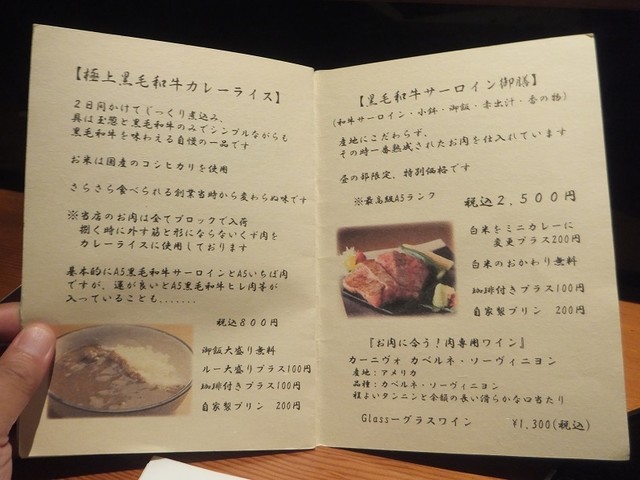 【極上黒毛和牛カレーライス】
２日間かけてじっくり煮込み、
具は玉葱と黒毛和牛のみでシンプルながらも
黒毛和牛を味わえる自慢の一品です
お米は国産のコシヒカリを使用
さらさら食べられる創業当時から変わらぬ味です
※当店のお肉は全てブロックで入荷
捌く時に外す筋と形にならないくず肉を
カレーライスに使用しております
基本的にA5黒毛和牛サーロインとA5いちぼ肉
ですが、運が良いとA5黒毛和牛ヒレ肉等が
入っていることも．．．．．．．
税込８００円
御飯大盛り無料
ルー大盛りプラス100円
珈琲付きプラス100円
自家製プリン 200円
【黒毛和牛サーロイン御膳】
(和牛サーロイン・小鉢・御飯・赤出汁・香の物)
産地にこだわらず、
その時一番熟成されたお肉を仕入れています
昼の部限定、特別価格です
※最高級A5ランク 税込２,５００円
白米をミニカレーに
変更プラス200円
白米のおかわり無料
珈琲付きプラス100円
自家製プリン 200円
『お肉に合う！肉専用ワイン』
カーニヴォ カベルネ・ソーヴィニヨン
産地：アメリカ
品種：カベルネ・ソーヴィニヨン
程よいタンニンと余韻の長い滑らかな口当たり
Glassーグラスワイン ¥1,300(税込)